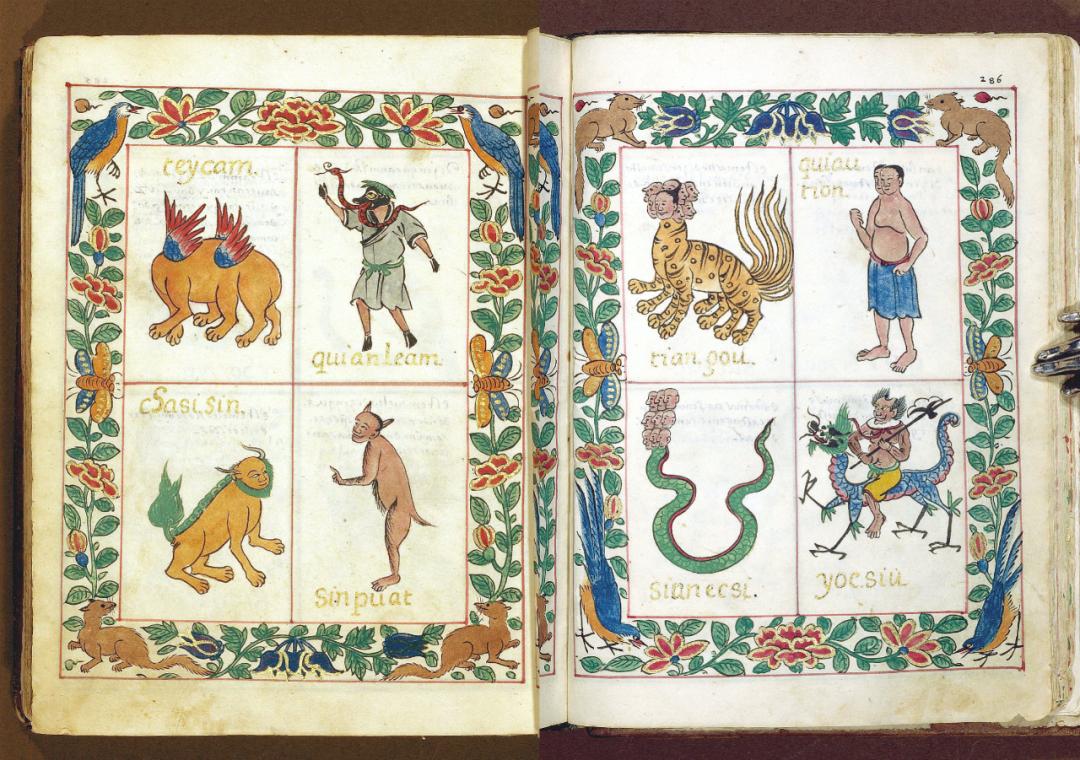 teycam.
quianleam.
Sasisin.
sinpuat
286
quiau
tion.
tian gou.
siunecsi.
yoc.siu